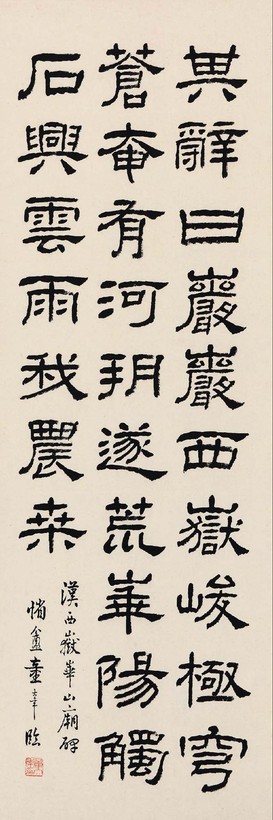 其辭曰巖巖西嶽峻極穹
蒼奄有河朔遂荒華陽觸
石興雲雨我農桑
漢西嶽華山廟碑
盦童大年臨